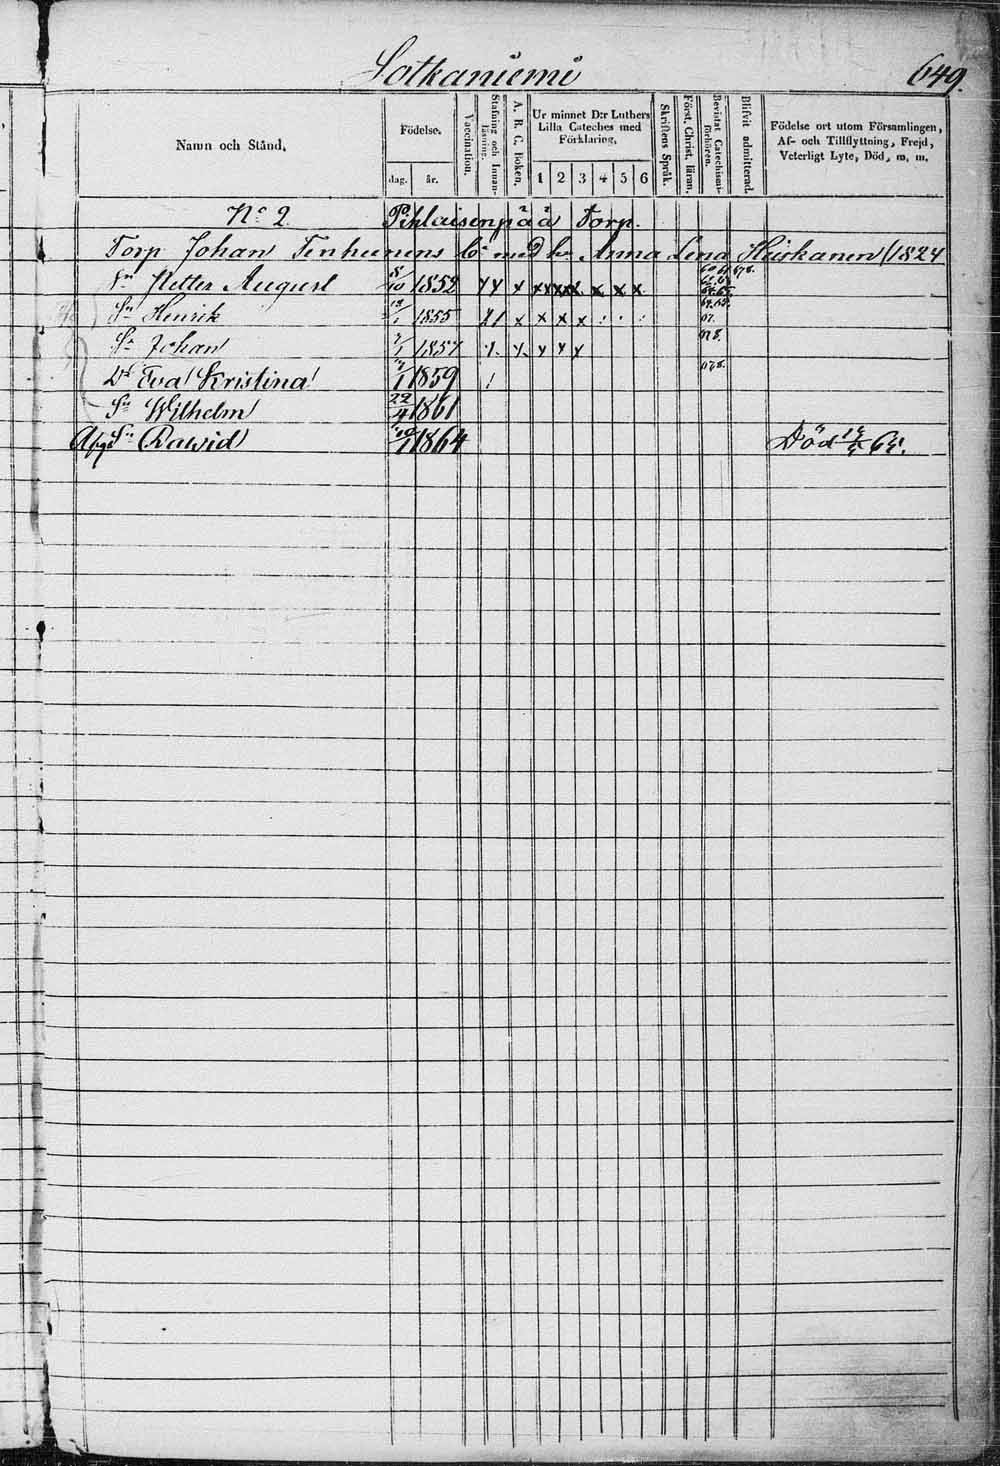 Sotkaniemi 649.
Namn och Stånd.
Födelse.
dag. år.
Vaccination.
Stafning och Innanläsning.
A. B. C. Boken.
Ur minnet D:r Luthers Lilla Cateches med Förklaring.
1 2 3 4 5 6
Skriftens Språk.
Först. Christ. läran.
Bevistat Catechismiförhören.
Blifvit admitterad.
Födelse ort utom Församlingen,
Af- och Tillflyttning, Frejd,
Veterligt Lyte, Död, m. m.
No 2 Pihlaisenpää Torp.
Torp Johan Tenhunens b: med h: Anna Lena Heiskanen /1824
Sn Petter August 8/10 1852 x x x x x x x x x
Sn Henrik 1855 x x x x
Sn Johan 1857 x x x
Dr Eva Kristina 1859
Sn Wilhelm 22/4 1861
Afgd Sn Dawid 1864 Död